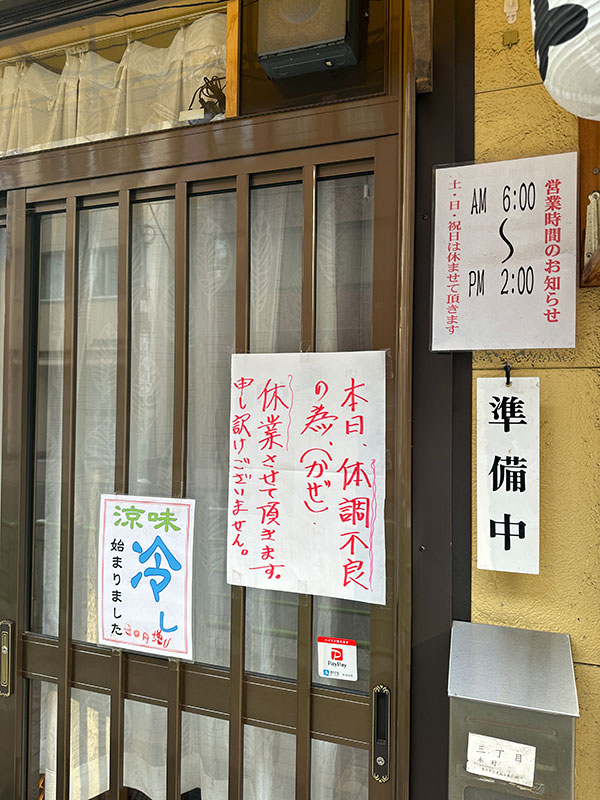 営業時間のお知らせ
AM 6:00
〜
PM 2:00
土・日・祝日は休ませて頂きます
準備中
本日、体調不良
の為、(かぜ)
休業させて頂きます。
申し訳けございません。
涼味
冷し
始まりました
PayPay
三丁目
木村